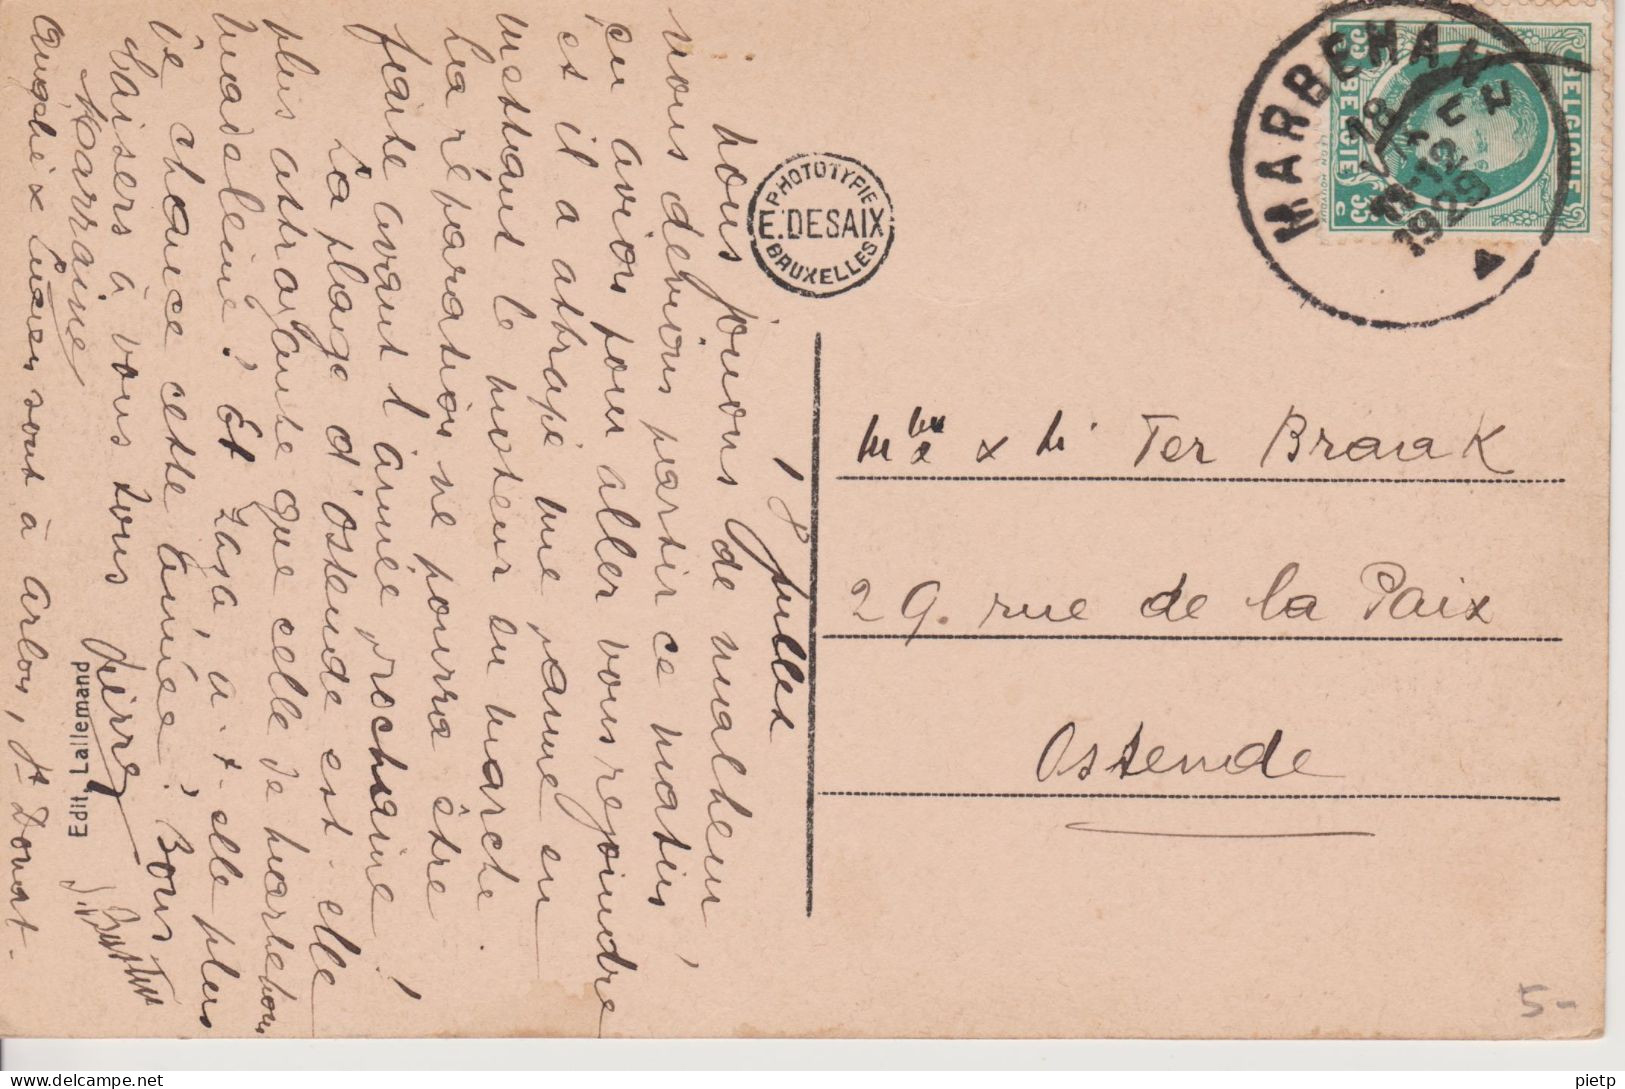 18 juillet
Nous jouons de malheur,
nous devions partir ce matin
en avion pour aller vous rejoindre
et il a attrapé une panne en
mettant le moteur en marche.
La réparation ne pourra être
faite avant l'année prochaine!
La plage d'Ostende est-elle
plus attrayante que celle de
Madeleine? Et Zaza, a-t-elle plus
de chance cette année? Bons
baisers à vous tous
Pierre
Marraine
sont à Arlon, St Donat.
Edit. Lallemand
PHOTOTYPIE
E. DESAIX
BRUXELLES
MARBEHAN
18
12
1929
BELGIQUE
BELGIE
35 c
Mme & Mr Ter Braak
29. rue de la Paix
Ostende
5-
pietp